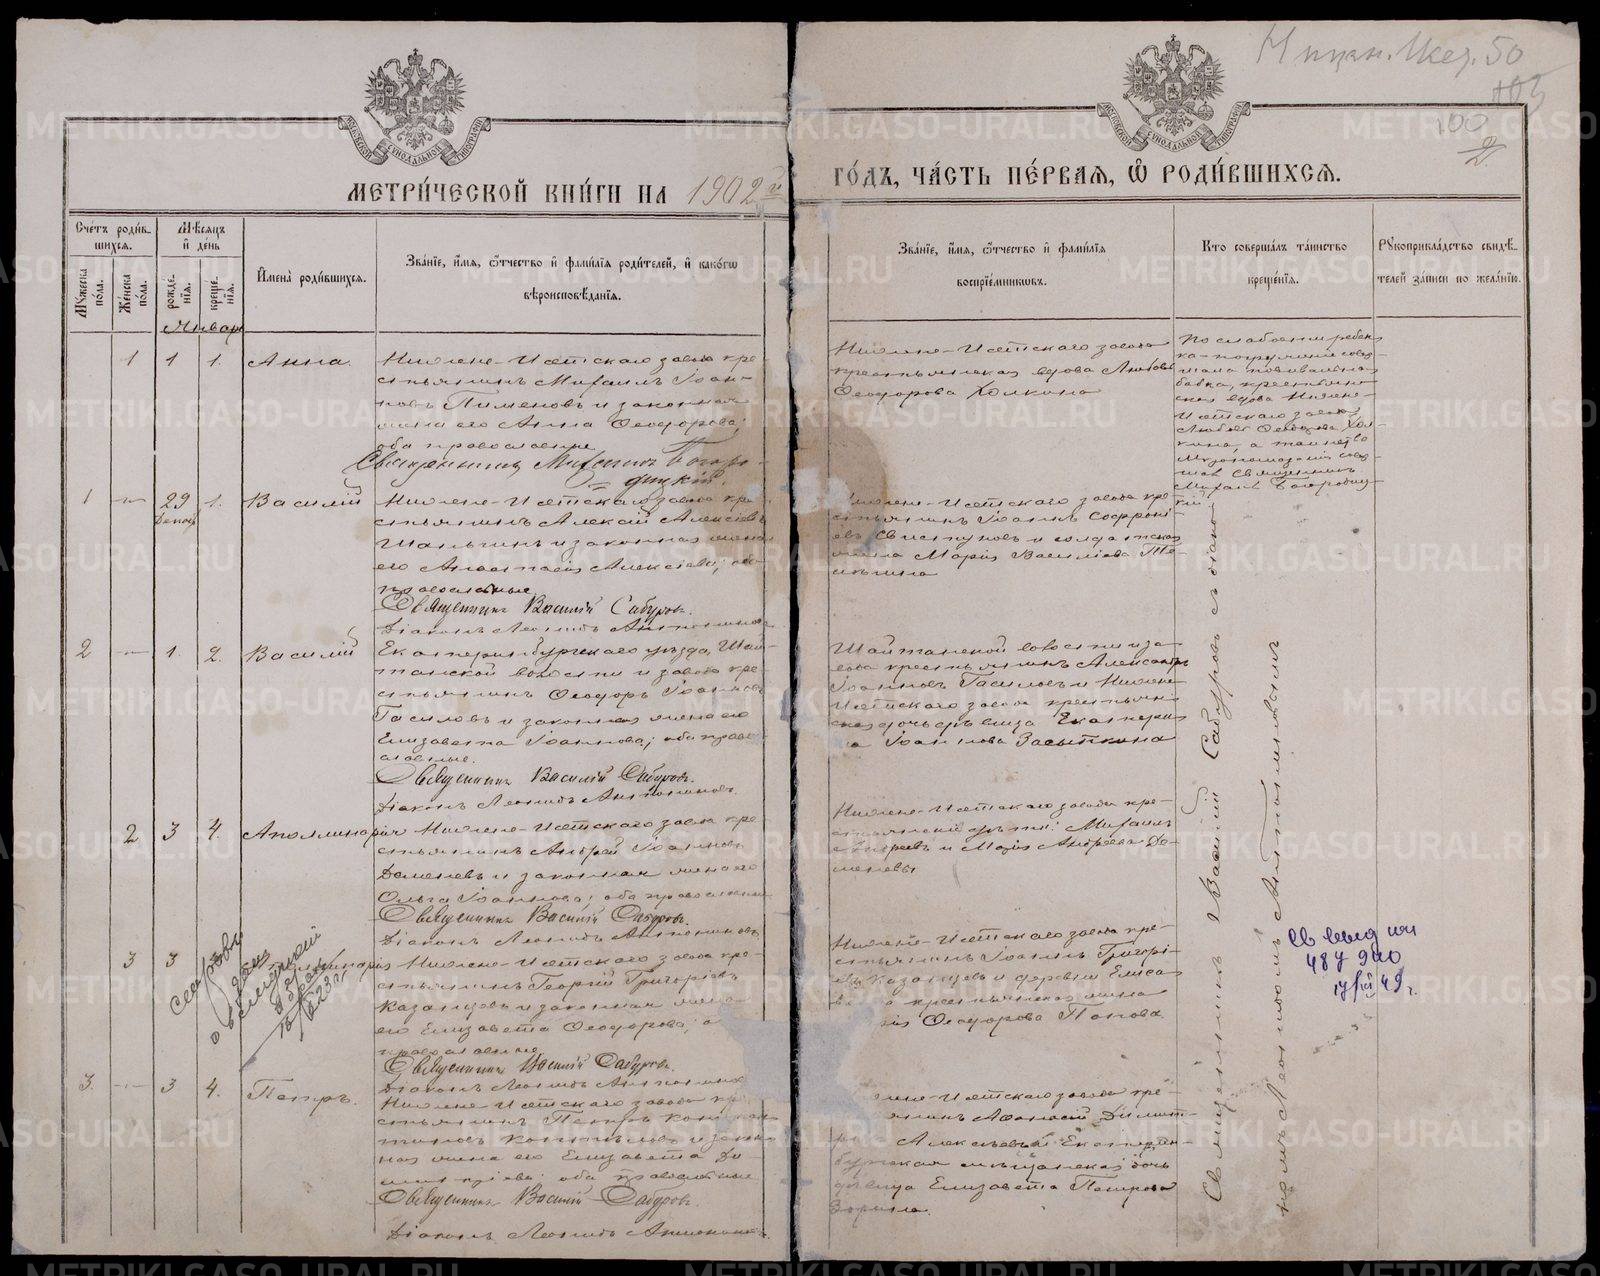 Нижн. Исет. 50
103
100
2
МЕТРИ́ЧЕСКОЙ КНИ́ГИ НА 1902й ГО́ДЪ, ЧА́СТЬ ПЕ́РВАЯ, Ѡ РОДИ́ВШИХСЯ.
Сче́тъ роди́вшихся.
Мѣ́сяцъ и де́нь
Мꙋ́жеска по́ла.
Же́нска по́ла.
рожде́нїя.
креще́нїя.
И́мена роди́вшихся.
Зва́нїе, и́мя, ѻ́тчество и фами́лїя роди́телей, и како́гѡ вѣроисповѣ́данїя.
Зва́нїе, и́мя, ѻ́тчество и фами́лїя воспрїе́мниковъ.
Кто соверша́лъ та́инство креще́нїя.
Рꙋкоприкла́дство свидѣ́телей за́писи по жела́нїю.
Январь
1 1 1. Анна.
Нижне-Исетскаго завода кре-
стьянинъ Михаилъ Іоан-
новъ Пименовъ и законная
жена его Анна Ѳеодорова;
оба православные
Священникъ Михаилъ Богоро-
дицкій.
Нижне-Исетскаго завода
крестьянская вдова Любовь
Ѳеодорова Холкина
По слабости ребен-
ка погруженіе совер-
шала повивальная
бабка, крестьян-
ская вдова Нижне-
Исетскаго завода
Любовь Ѳеодорова Хол-
кина, а таинство
Мѵропомазанія совер-
шилъ Священникъ
Михаилъ Богородиц-
кій.
1 — 29 1. Василій
Декабр
Нижне-Исетскаго завода кре-
стьянинъ Алексій Алексіевъ
Шаньгинъ и законная жена
его Анастасія Алексіева; оба
православные
Священникъ Василій Сабуровъ.
Діаконъ Леонидъ Антониновъ
Нижне-Исетскаго завода кре-
стьянинъ Іоаннъ Софроні-
евъ Свистуновъ и солдатская
жена Марія Васильева
2 — 1. 2. Василій
Екатеринбургскаго уѣзда, Шай-
танской волости и завода кре-
стьянинъ Ѳеодоръ Іоанновъ
Гасиловъ и законная жена его
Елизавета Іоаннова; оба право-
славные.
Священникъ Василій Сабуровъ.
Діаконъ Леонидъ Антониновъ.
Шайтанской волости и за-
вода крестьянинъ Александръ
Іоанновъ Гасиловъ и Нижне-
Исетскаго завода крестьян-
ская дочь дѣвица Екатери-
на Іоаннова Засыпкина
2 3 4. Аполлинарія
Нижне-Исетскаго завода кре-
стьянинъ Андрей Іоанновъ
Деменевъ и законная жена его
Ольга Іоаннова; оба православные
Священникъ Василій Сабуровъ.
Діаконъ Леонидъ Антониновъ.
Нижне-Исетскаго завода кре-
стьянскія дѣти: Михаилъ
Андреевъ и Марія Андреева Де-
меневы
3 3
Нижне-Исетскаго завода кре-
стьянинъ Георгій Григоріевъ
Казанцевъ и законная жена
его Елизавета Ѳеодорова; о
православные
Священникъ Василій Сабуровъ.
Діаконъ Леонидъ Антонинов
Нижне-Исетскаго завода кре-
стьянинъ Іоаннъ Григорі-
евъ Казанцевъ и деревни Елиза-
вета крестьянская жена
Ѳеодорова Попова
3. — 3 4. Петръ.
Нижне-Исетскаго завода кре-
стьянинъ Петръ Констан-
тиновъ Копыловъ и закон-
ная жена его Елизавета Ди-
митріева; оба православные
Священникъ Василій Сабуровъ.
Діаконъ Леонидъ Антониновъ.
Нижне-Исетскаго завода кре-
стьянинъ Аѳанасій Димит-
ріевъ Алексѣевъ и Екатерин-
бургская мѣщанская дочь
дѣвица Елизавета Петрова
Зорина.
Священникъ Василій Сабуровъ съ діако-
номъ Леонидомъ Антониновымъ
Св выд
484940
17/VII 49г.